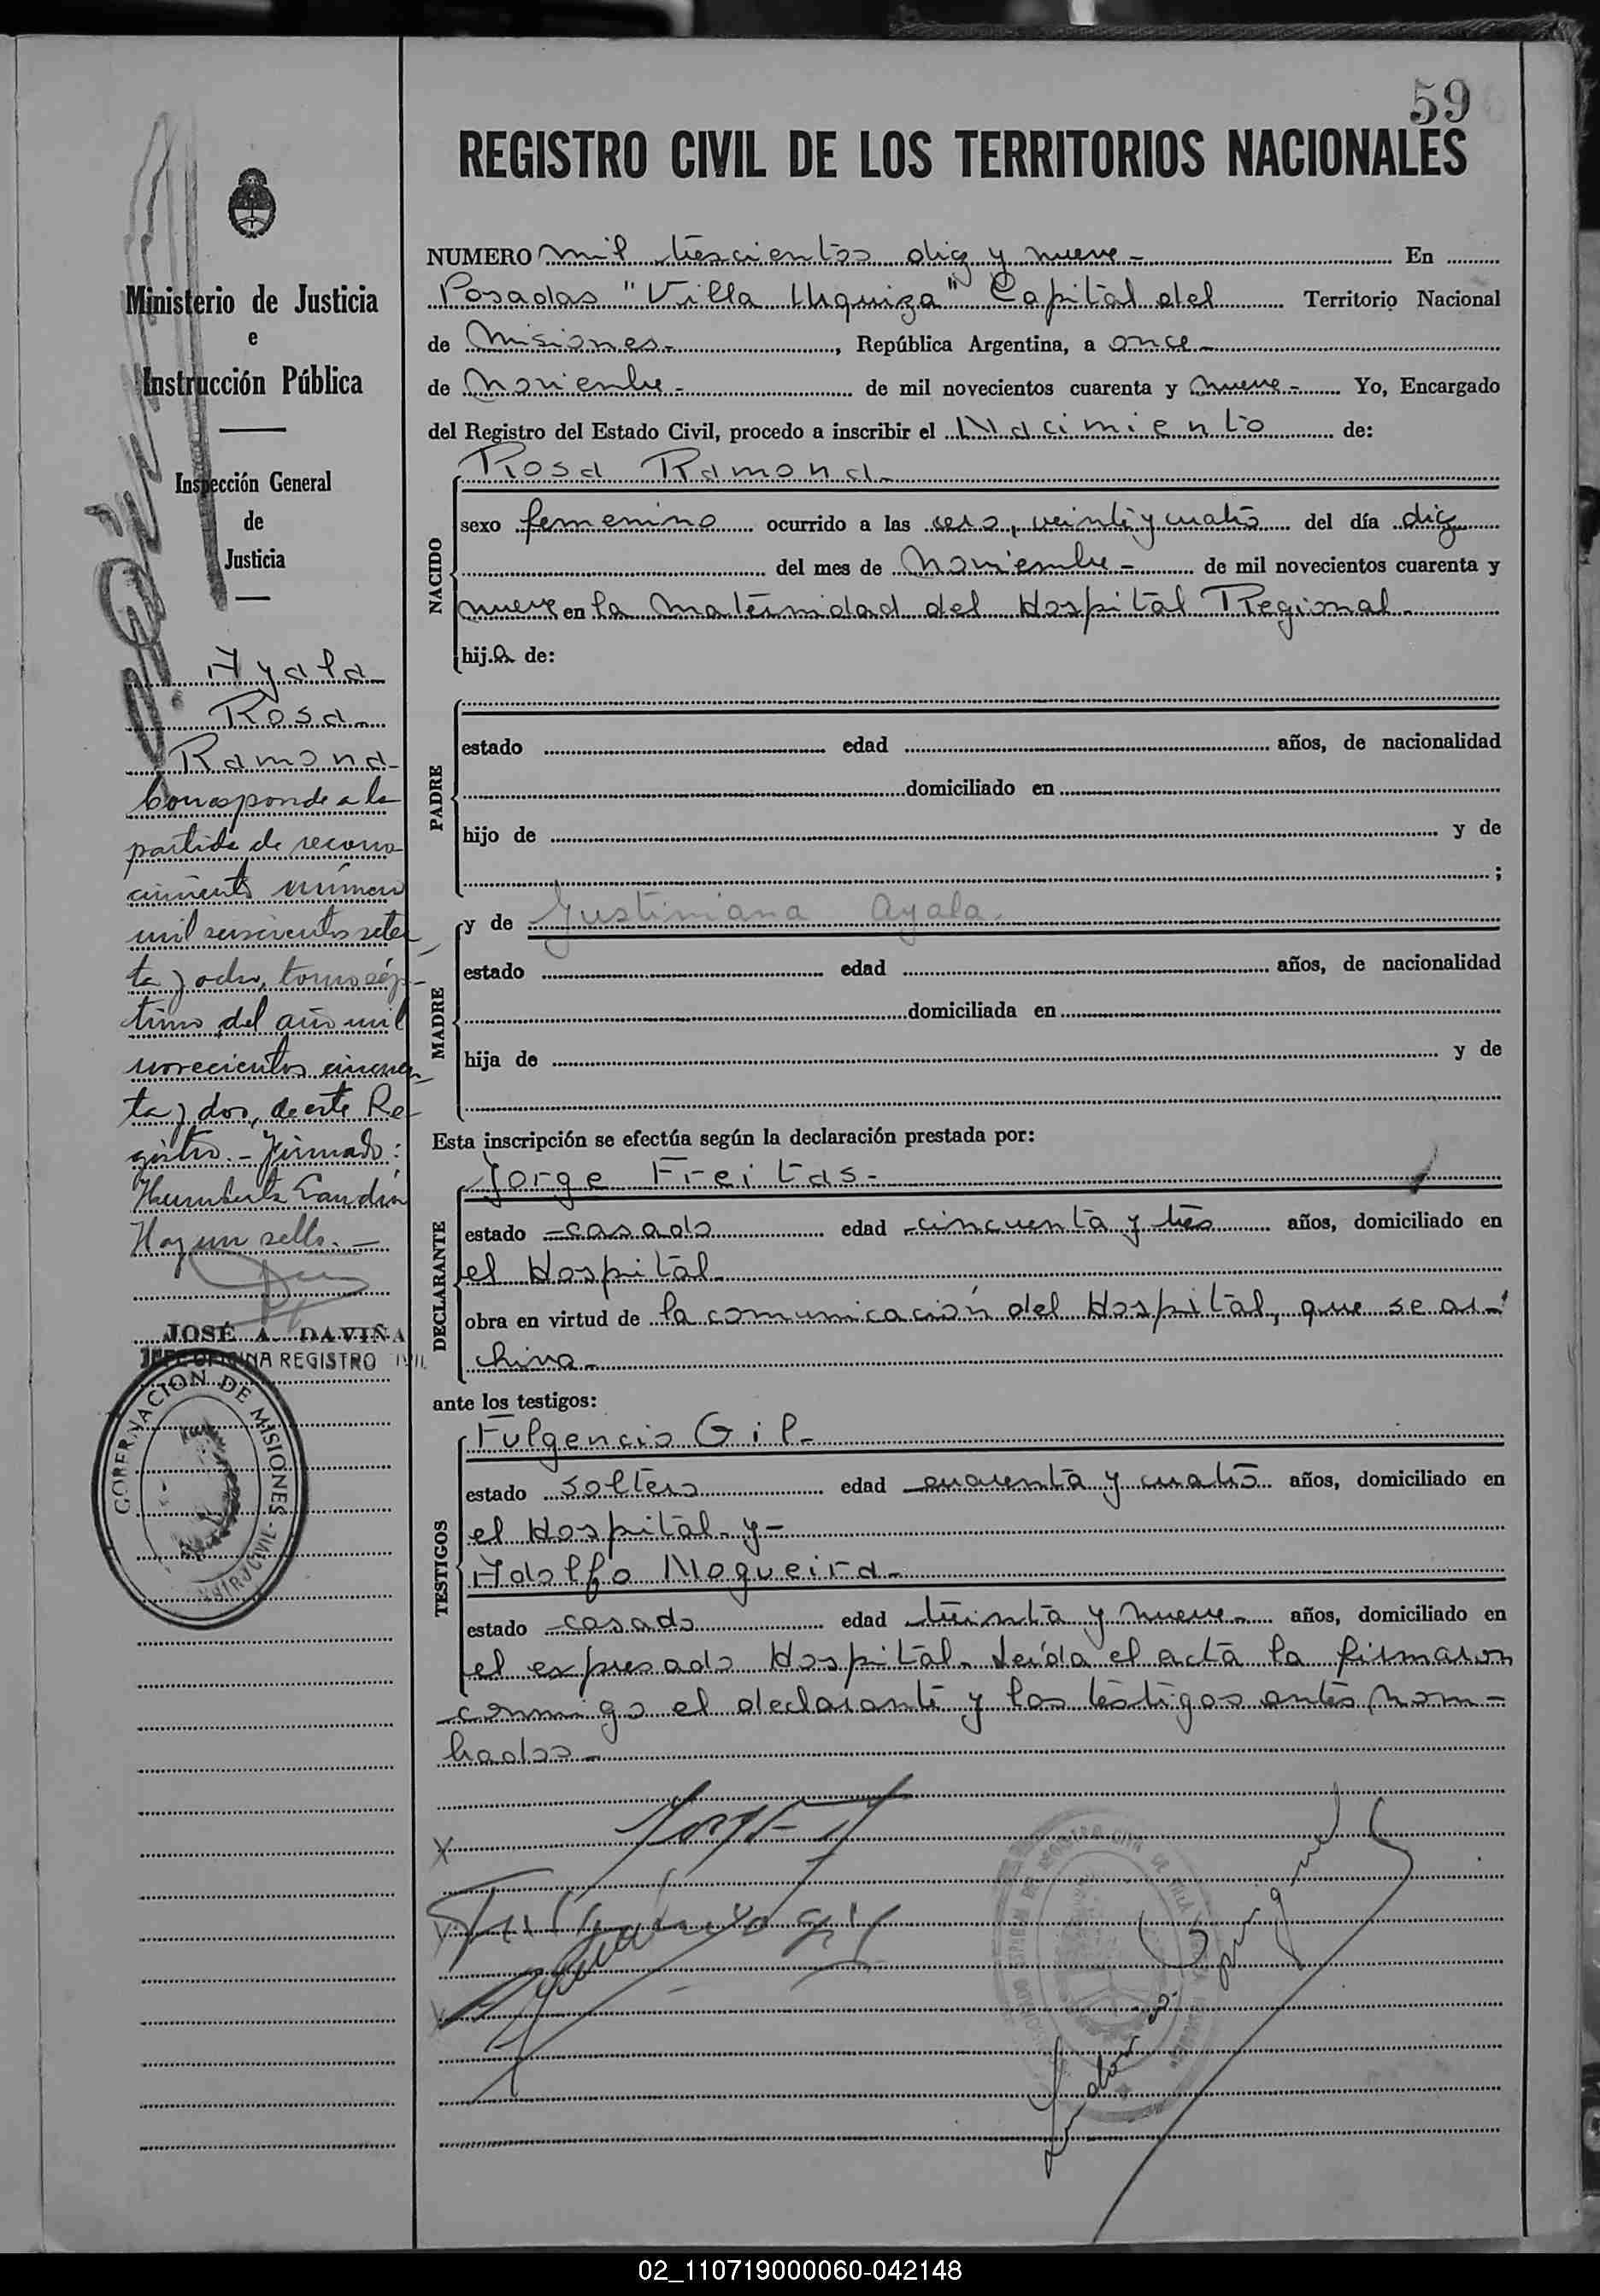 59
REGISTRO CIVIL DE LOS TERRITORIOS NACIONALES
Ministerio de Justicia
e
Instrucción Pública
Inspección General
de
Justicia
Ayala
Rosa
Ramona
Corresponde a la
partida de recono
cimiento número
mil seiscientos seten
ta y ocho, tomo sép-
timo del año mil
novecientos cincuen
ta y dos, de este Re-
gistro.- Firmado:
Humberto
Hay un sello.-
JOSÉ A. DAVIÑA
JEFE OFICINA REGISTRO CIVIL
GOBERNACION DE MISIONES
NUMERO mil trescientos diez y nueve- En
Posadas "Villa Urquiza" Capital del Territorio Nacional
de Misiones-, República Argentina, a once-
de Noviembre- de mil novecientos cuarenta y nueve- Yo, Encargado
del Registro del Estado Civil, procedo a inscribir el Nacimiento de:
Rosa Ramona-
NACIDO
sexo femenino ocurrido a las cero, veinte y cuatro del día diez
del mes de Noviembre- de mil novecientos cuarenta y
nueve en la Maternidad del Hospital Regional-
hija de:
PADRE
estado edad años, de nacionalidad
domiciliado en
hijo de y de
;
MADRE
y de Justiniana Ayala.
estado edad años, de nacionalidad
domiciliada en
hija de y de
Esta inscripción se efectúa según la declaración prestada por:
Jorge Freitas-
DECLARANTE
estado casado edad cincuenta y tres años, domiciliado en
el Hospital-
obra en virtud de la comunicación del Hospital, que se ar-
chiva-
ante los testigos:
Fulgencio Gil-
TESTIGOS
estado soltero edad cuarenta y cuatro años, domiciliado en
el Hospital- y-
Adolfo Nogueira-
estado casado edad treinta y nueve- años, domiciliado en
el expresado Hospital- Leída el acta la firmaron
conmigo el declarante y los testigos antes nom-
brados-
02_110719000060-042148